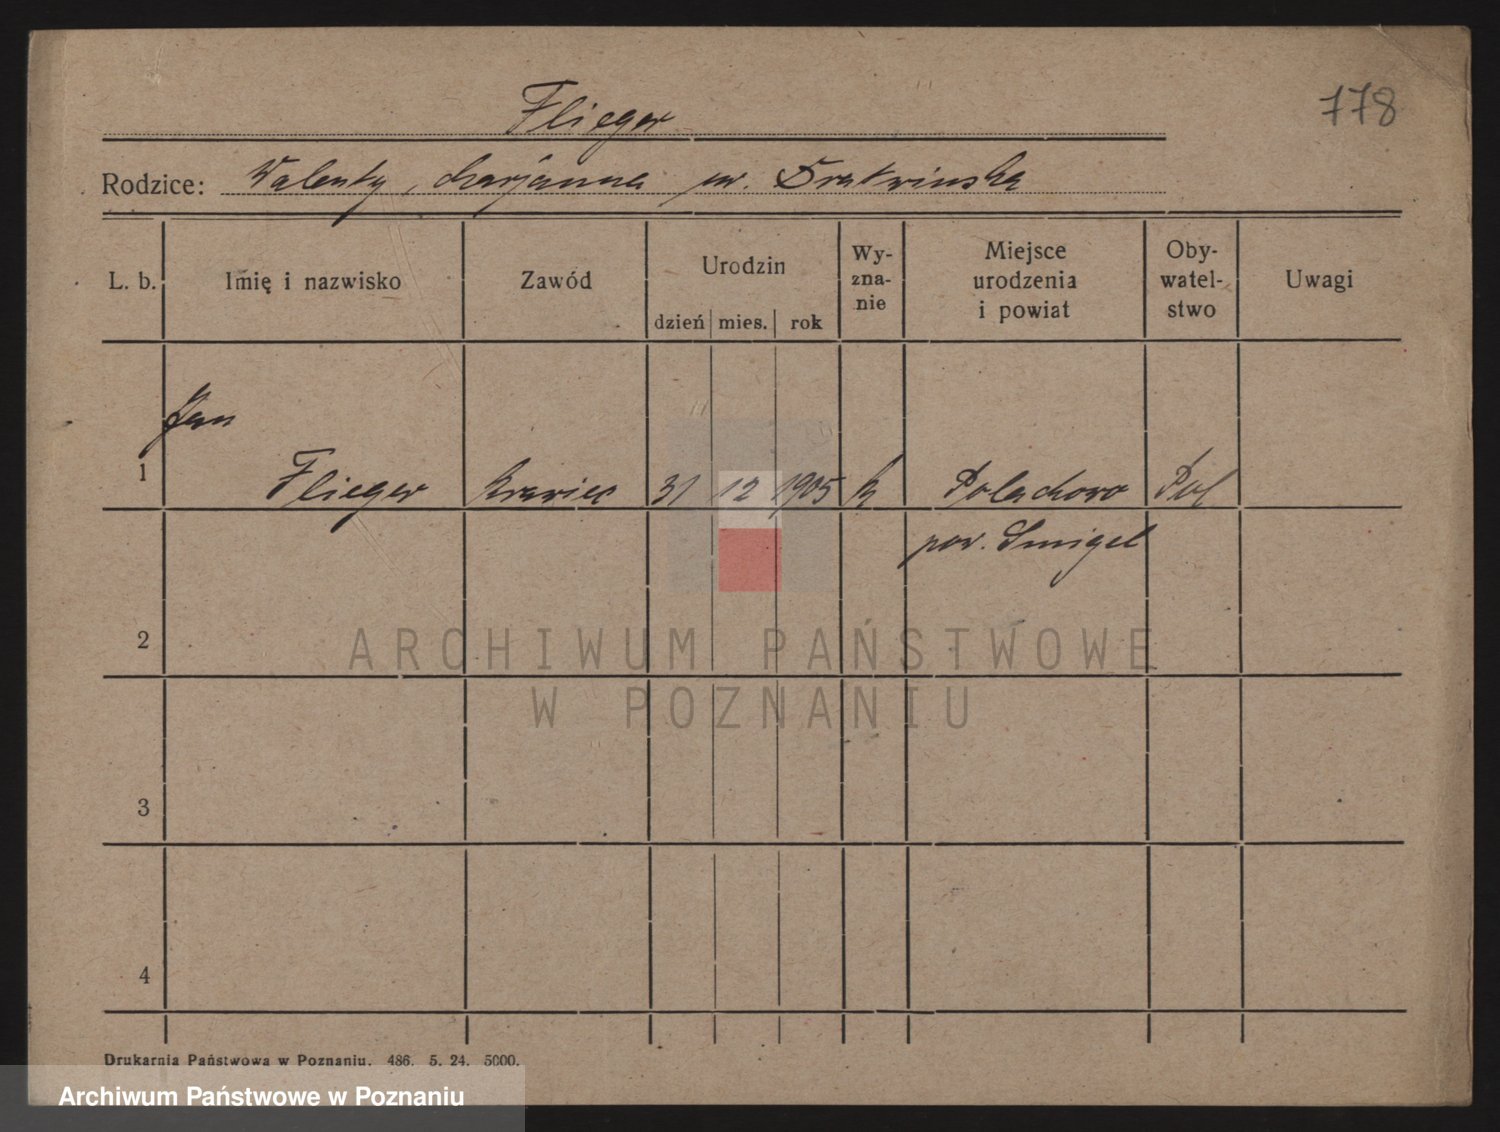 Flieger
778
Rodzice: Walenty, Marjanna
L. b.
Imię i nazwisko
Zawód
Urodzin
dzień mies. rok
Wy-
zna-
nie
Miejsce
urodzenia
i powiat
Oby-
watel-
stwo
Uwagi
Jan
1 Flieger krawiec 31 12 1905 k Polachowo Pol
pow. Smigel
2
ARCHIWUM PAŃSTWOWE
W POZNANIU
3
4
Drukarnia Państwowa w Poznaniu. 486. 5. 24. 5000.
Archiwum Państwowe w Poznaniu